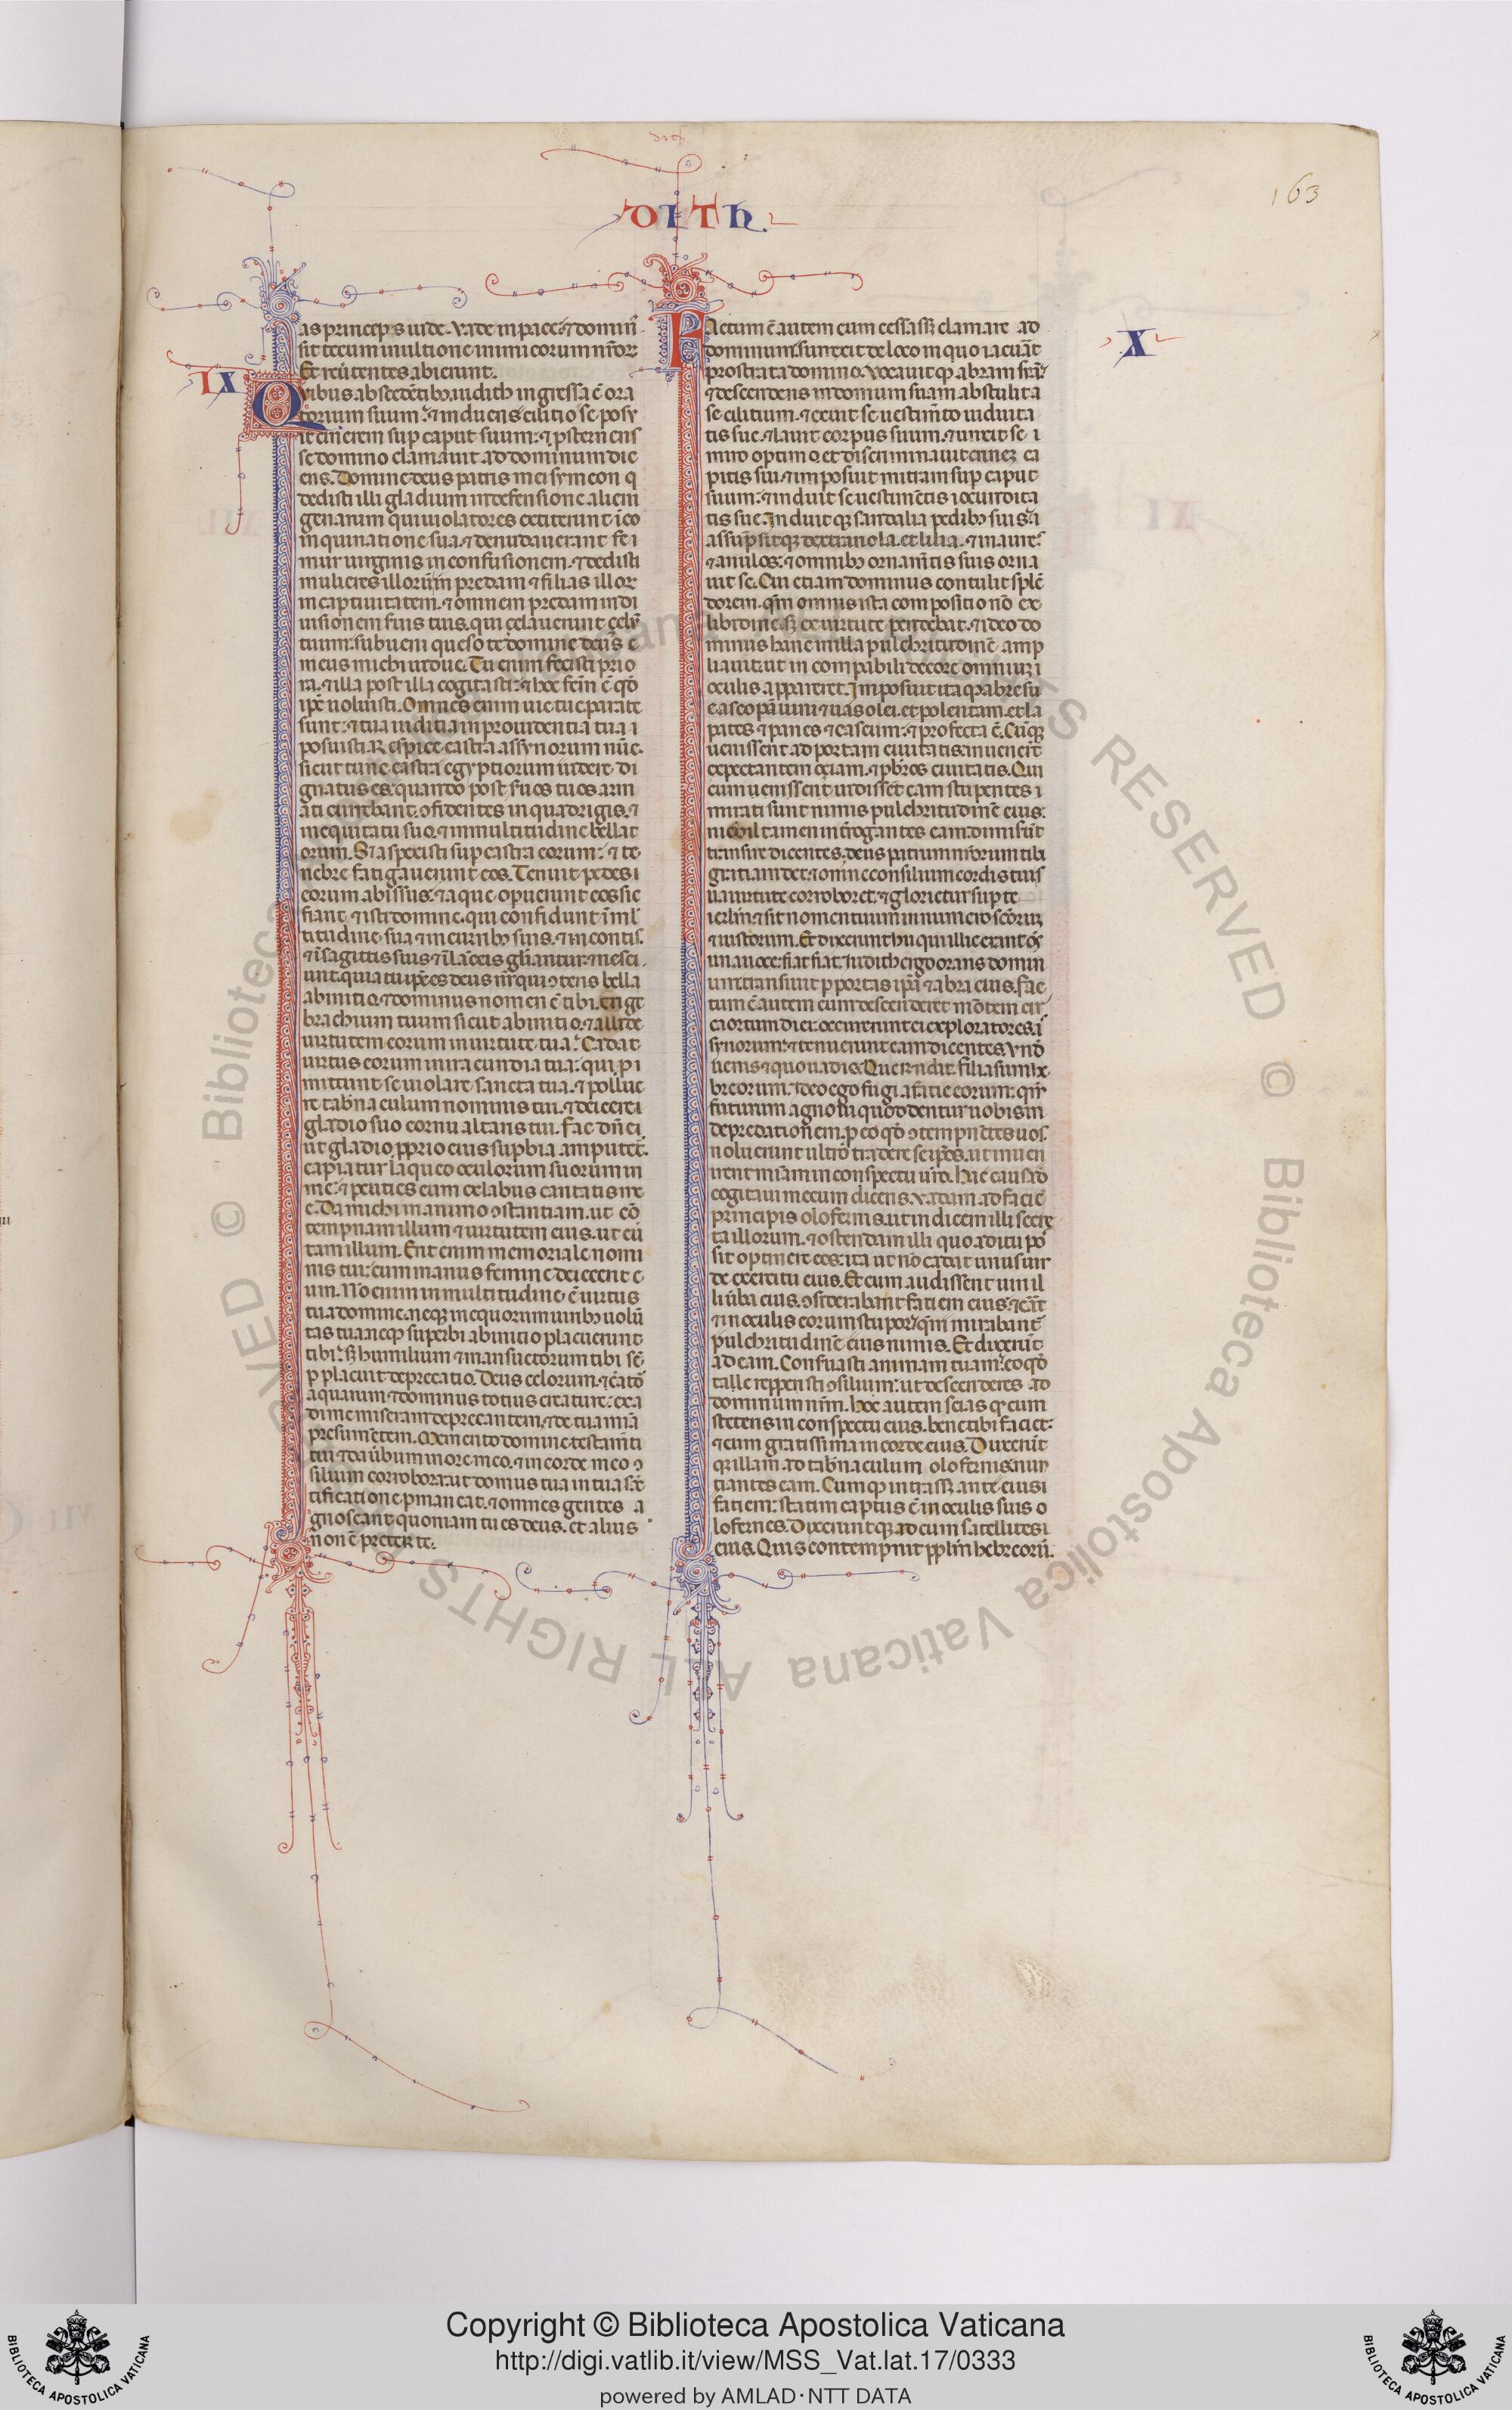 dith
163
DITH.
as princeps iude. Vade in pace. ⁊ domin̄
sit tecum in ultione inimicorum nr̄oꝝ
Et reūtentes abierunt.
IX
Quibus abscedētibꝫ. iudith ingressa ē ora
torium suum. ⁊ induens se cilitio. posu
it cinerem suꝑ caput suum: ⁊ ꝓsternens
se domino clamauit ad dominum di
cens. Domine deus patris mei symeon q̇
dedisti illi gladium in defensione alieni
genarum qui uiolatores extiterunt ī co
inquinatione sua. ⁊ denudauerunt fe
mur uirginis in confusionem. ⁊ dedisti
mulieres illorum in predam ⁊ filias illoꝝ
in captiuitatem. ⁊ omnem predam in di
uisionem suis tuis. qui zelauerunt zelū
tuum: subueni queso te domine deus
meus michi uidue. Tu enim fecisti prio
ra. ⁊ illa post illa cogitasti: ⁊ hoc fc̄m ē qd̄
ip̄e uoluisti. Omnes enim uie tue parate
sunt: ⁊ tua iuditia in prouidentia tua
posuisti. Respice castra assyriorum nūc.
sicut tunc castra egyptiorum uidere di
gnatus es. quando post suos tuos arm
ati currebant. ↄfidentes in quadrigis. ⁊
in equitatu suo. ⁊ in multitudine bellat
orum. Sed aspexisti suꝑ castra eorum: ⁊ te
nebre fatigauerunt eos. Tenuit pedes
eorum abissus: ⁊ aque opuerunt eos. sic
fiant ⁊ isti domine. qui confidunt ī ml̄
titudine sua ⁊ in curribꝫ suis. ⁊ in contis.
⁊ ī sagittis suis ⁊ ī lāceis gl̄iantur: ⁊ nesci
unt. quia tu ip̄e es deus nr̄. qui ↄteris bella
ab initio. ⁊ dominus nomen ē tibi. Erige
brachium tuum sicut ab initio. ⁊ allide
uirtutem eorum in uirtute tua. Cadat
uirtus eorum in iracundia tua: qui ꝓ
mittunt se uiolare sancta tua. ⁊ pollue
re tab̄naculum nominis tui. ⁊ deicere
gladio suo cornu altaris tui. Fac dn̄e
ut gladio ꝓprio eius suꝑbia amputet̄.
capiatur laqueo oculorum suorum in
me: ⁊ ꝑcuties eum ex labiis caritatis me
e. Da michi in animo ↄstantiam. ut cō
tempnam illum ⁊ uirtutem eius. ut eū
tam illum. Erit enim memoriale nomi
nis tui: cum manus femine deiecerit e
um. Nō enim in multitudine ē uirtus
tua domine. neqꝫ in equorum uiribꝫ uolū
tas tua. neqꝫ superbi ab initio placuerunt
tibi: sꝫ humilium ⁊ mansuetorum tibi sē
ꝑ placuit deprecatio. Deus celorum. ⁊ c̄atō
aquarum ⁊ dominus totius creature: exa
di me miseram deprecantem. ⁊ de tua mīa
presumētem. Memento domine testam̄ti
tui ⁊ da ūbum in ore meo. ⁊ in corde meo ↄ
silium corrobora: ut domus tua in tua scī
tificatione ꝑmaneat. ⁊ omnes gentes a
gnoscant quoniam tu es deus. et alius
non ē preter te.
X
Factum ē autem cum cessassꝫ clamare ad
dominum. surrexit de loco in quo iacuāt
prostrata domino. Vocauitqꝫ abram suā.
⁊ descendens in domum suam abstulit a
se cilitium. ⁊ exuit se uestim̄to uiduita
tis sue. ⁊ lauit corpus suum. ⁊ unxit se
mirro optimo. et discriminauit crinē ca
pitis sui. ⁊ imposuit mitram suꝑ caput
suum: ⁊ induit se uestimētis iocundita
tis sue. Induitqꝫ sandalia pedibꝫ suis.
assūpsitqꝫ dextrariola. et lilia. ⁊ inaures
⁊ anulos: ⁊ omnibꝫ ornam̄tis suis orna
uit se. Cui etiam dominus contulit splē
dorem. qm̄ omnis ista compositio nō ex
libidine. sꝫ ex uirtute pendebat. ⁊ ideo do
minus hanc in illa pulchritudinē amp
liauit: ut incompabili decore omniuꝫ
oculis appareret. Imposuit itaqꝫ abre su
e ascopā uini ⁊ uas olei. et polentam. et la
pates ⁊ panes ⁊ caseum: ⁊ profecta ē. Cūqꝫ
uenissent ad portam ciuitatis. inuenert̄
expectantem oziam. ⁊ pb̄ros ciuitatis. Qui
cum uenissent uidissēt eam stupentes
mirati sunt nimis pulchritudinē eius:
nichil tamen int̄rogantes eam: dimisūt
transire dicentes. deus patrum nr̄orum tibi
gratiam det: ⁊ omne consilium cordis tui
sua uirtute corroboret. ⁊ glorietur suꝑ te
ierl̄m ⁊ sit nomen tuum in numero sc̄oruꝫ
⁊ iustorum. Et dixerunt hii qui illic erant oēs
una uoce: fiat fiat. Iudith ergo orans domin
um: transiuit ꝑ portas ip̄a ⁊ abra eius. Fac
tum ē autem cum descenderet mōtem cir
ca ortum diei: occurrerunt ei exploratores as
syriorum: ⁊ tenuerunt eam dicentes. Vnde
uenis ⁊ quo uadis. Que r̄ndit. Filia sum he
breorum. Ideo ego fugi a facie eorum: qm̄
futurum agnoui quod dentur uobis in
depredationem. ꝑ eo qd̄ ↄtempnētes uos
noluerunt ultro tradere seip̄os. ut inueni
rent mīam in conspectu ur̄o. Hac causa
cogitaui mecum dicens. Vadam ad faciē
principis olofernis. ut indicem illi secre
ta illorum. ⁊ ostendam illi quo aditu pos
sit optinere eos: ita ut nō cadat unus uir
de exercitu eius. Et cum audissent uiri il
li ūba eius. ↄsiderabant faciem eius. ⁊ erāt
in oculis eorum stupor. qm̄ mirabant̄
pulchritudinē eius nimis. Et dixerūt
ad eam. Conseruasti animam tuam: eo qd̄
talle reppersti ↄsilium: ut descenderes ad
dominum nrm̄. Hoc autem scias qꝫ cum
steteris in conspectu eius. bene tibi faciet:
⁊ eum gratissima in corde eius. Duxerūt
qꝫ illam ad tab̄naculum olofernis. nun
tiantes eam. Cumqꝫ intrassꝫ ante eius
faciem: statim captus ē in oculis suis o
lofernes. Dixeruntqꝫ ad eum satellites
eius. Quis contempnit ppl̄m hebreorū.
Copyright © Biblioteca Apostolica Vaticana
http://digi.vatlib.it/view/MSS_Vat.lat.17/0333
powered by AMLAD·NTT DATA
BIBLIOTECA APOSTOLICA VATICANA
BIBLIOTECA APOSTOLICA VATICANA